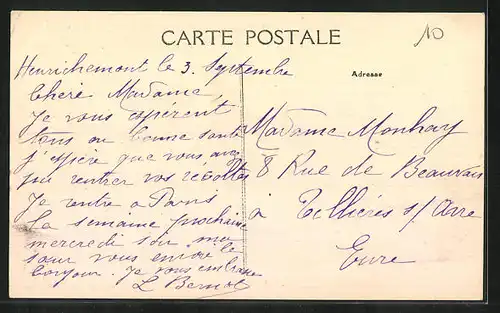 CARTE POSTALE
10
Adresse
Henrichemont le 3. Septembre
Chere Madame,
Je vous espérent
tous en bonne santé
j'espère que vous avez
pu rentrer vos récoltes
Je rentre a Paris
la semaine prochaine
mercredi soir ma
sœur vous envoie le
bonjour. Je vous embrasse
L
Madame Monhay
8 Rue de Beauvais
a Tillières s/ Avre
Eure